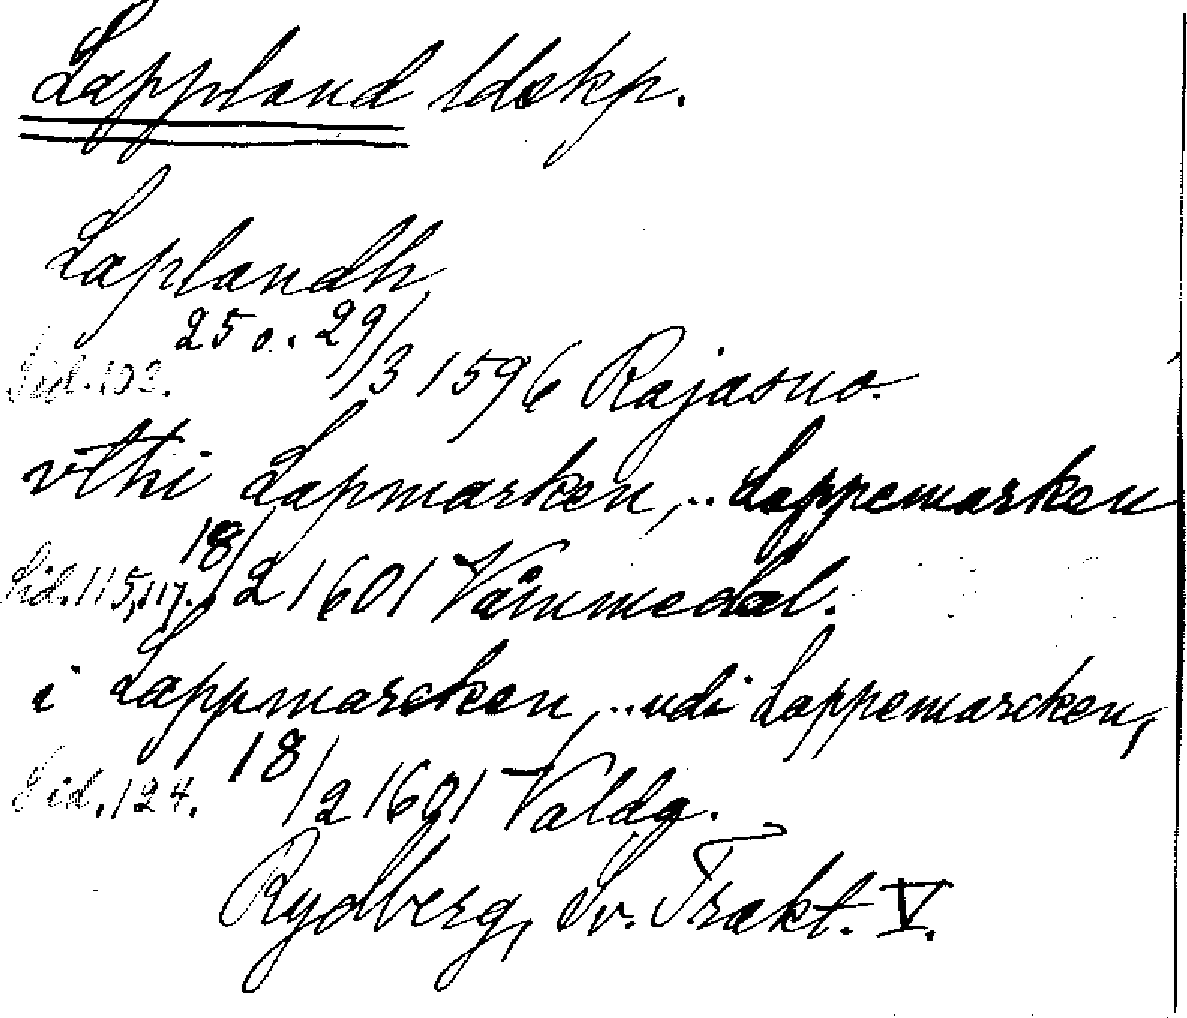 Lappland ldskp.
Laplandh
25 o. 29/3 1596 Rajasuo.
Sid. 103.
vthi Lapmarken, .. Lappemarken
Sid. 115, 117. 18/2 1601 Värmedal.
i Lappmarcken, .. udi Lappemarcken,
Sid. 124. 18/2 1601 Valdg.
Rydberg, Sv. Trakt. V.